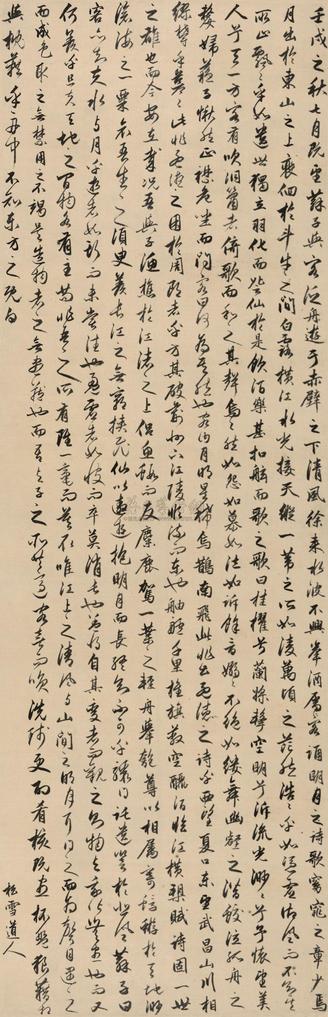 壬戌之秋七月既望蘇子與客泛舟遊于赤壁之下清風徐来水波不興舉酒屬客誦明月之詩歌窈窕之章少焉
月出於東山之上徘徊於斗牛之間白露橫江水光接天縱一葦之所如凌萬頃之茫然浩浩乎如馮虛御風而不知其
所止飄飄乎如遺世獨立羽化而登仙於是飲酒樂甚扣舷而歌之歌曰桂櫂兮蘭槳擊空明兮泝流光渺渺兮予懷望美
人兮天一方客有吹洞簫者倚歌而和之其聲嗚嗚然如怨如慕如泣如訴餘音嫋嫋不絕如縷舞幽壑之潛蛟泣孤舟之
嫠婦蘇子愀然正襟危坐而問客曰何為其然也客曰月明星稀烏鵲南飛此非孟德之詩乎西望夏口東望武昌山川相
繆鬱乎蒼蒼此非孟德之困於周郎者乎方其破荊州下江陵順流而東也舳艫千里旌旗蔽空釃酒臨江橫槊賦詩固一世
之雄也而今安在哉況吾與子漁樵於江渚之上侶魚鰕而友麋鹿駕一葉之輕舟舉匏尊以相屬寄蜉蝣於天地渺
滄海之一粟哀吾生之須臾羨長江之無窮挾飛仙以遨遊抱明月而長終知不可乎驟得託遺響於悲風蘇子曰
客亦知夫水與月乎逝者如斯而未嘗往也盈虛者如彼而卒莫消長也蓋將自其變者而觀之則物與我皆無盡也而又
何羨乎且夫天地之間物各有主苟非吾之所有雖一毫而莫取唯江上之清風與山間之明月耳得之而為聲目遇之
而成色取之無禁用之不竭是造物者之無盡藏也而吾與子之所共適客喜而笑洗盞更酌肴核既盡杯盤狼藉相
與枕藉乎舟中不知東方之既白
松雪道人